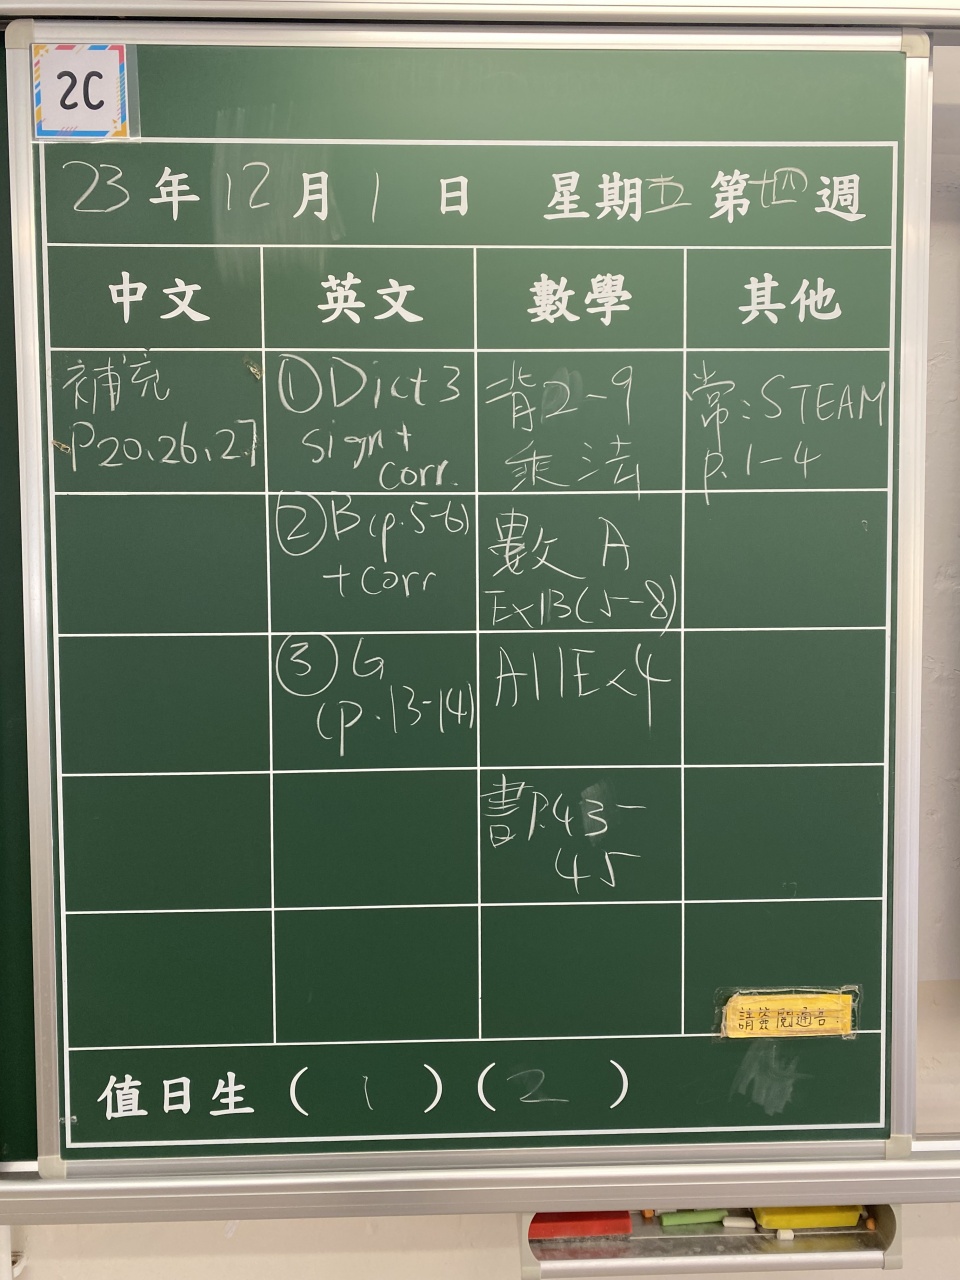 2C
23 年 12 月 1 日 星期五 第十四週
中文 英文 數學 其他
補充
P20、26、27
① Dict 3
sign +
corr.
② B (p.5-6)
+ corr
③ G
(p.13-14)
背2-9
乘法
數 A
Ex13(5-8)
A11Ex4
書P.43-
45
常：STEAM
p.1-4
請簽閱通告
值日生 ( 1 ) ( 2 )